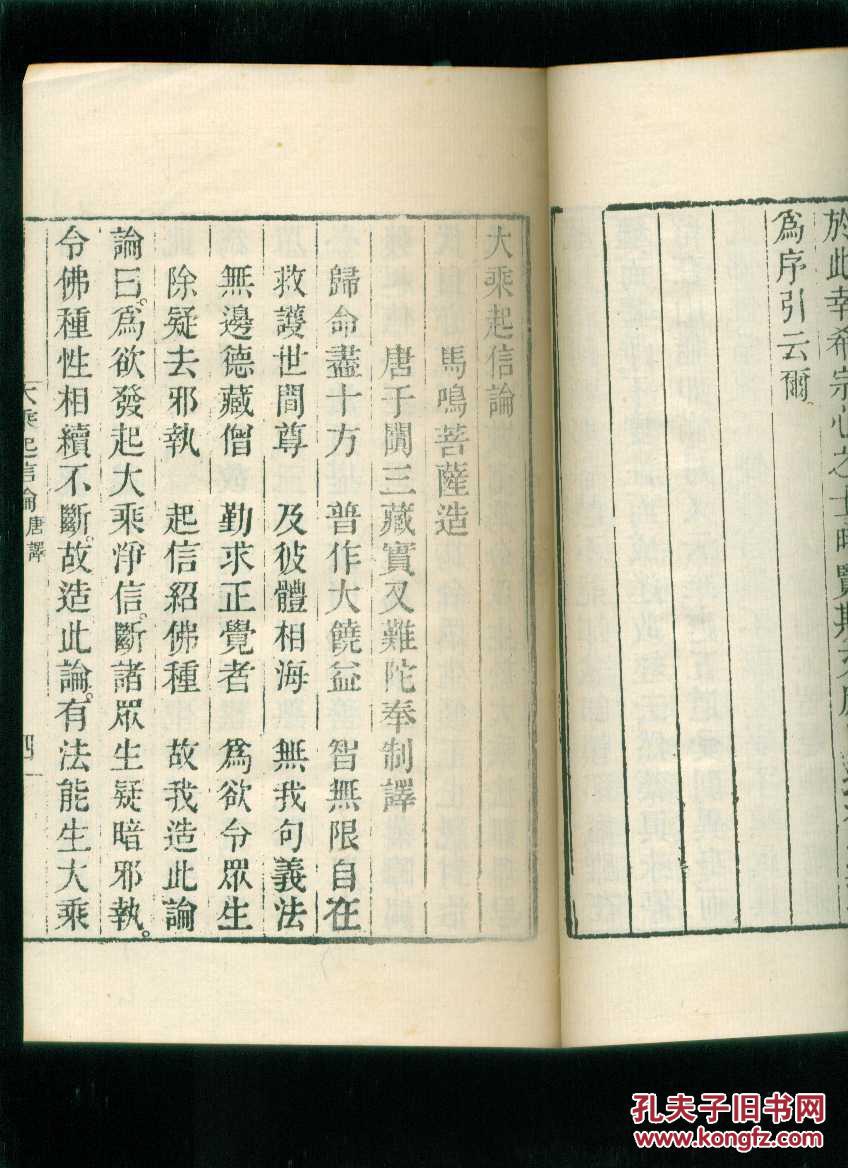 於此幸希宗心之士
爲序引云爾。
大乘起信論
馬鳴菩薩造
唐于闐三藏實叉難陀奉制譯
歸命盡十方 普作大饒益 智無限自在
救護世間尊 及彼體相海 無我句義法
無邊德藏僧 勤求正覺者 爲欲令眾生
除疑去邪執 起信紹佛種 故我造此論
論曰。爲欲發起大乘淨信。斷諸眾生疑暗邪執。
令佛種性相續不斷。故造此論。有法能生大乘
大乘起信論 唐譯 四
孔夫子旧书网
www.kongfz.com